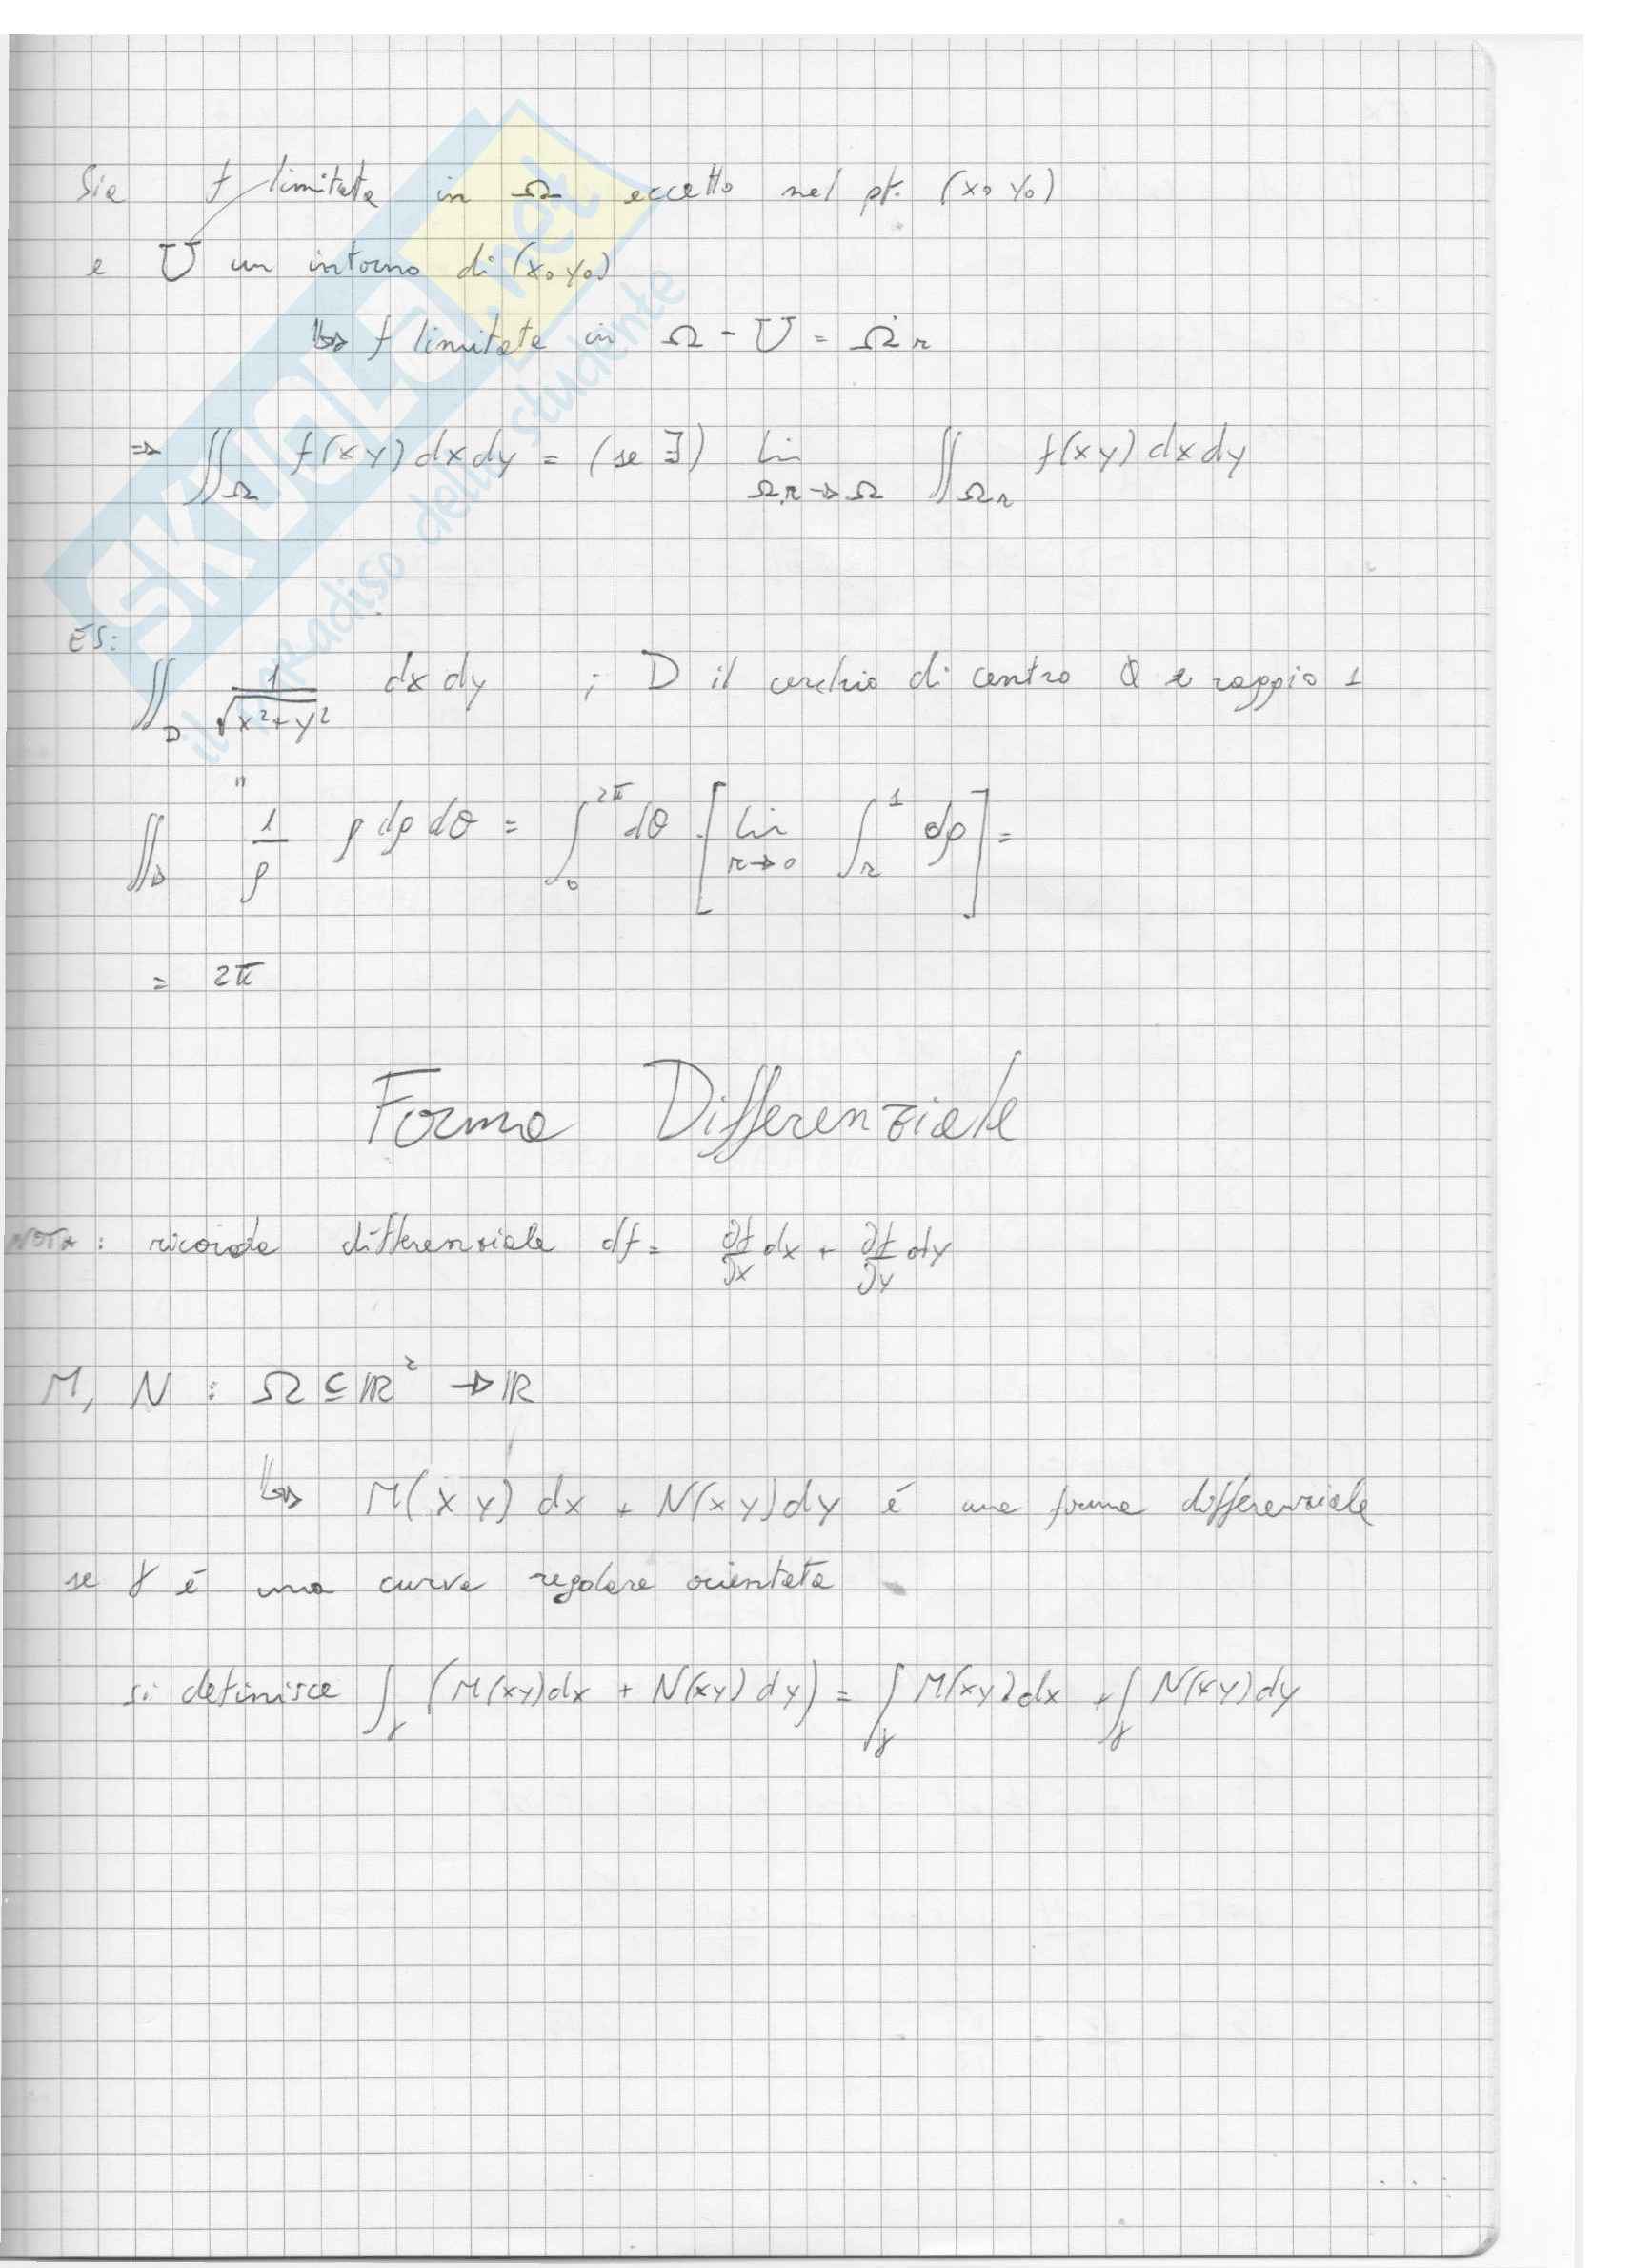 Sia f limitata in Ω eccetto nel pt. (x₀ y₀)
e U un intorno di (x₀ y₀)
↳ f limitata in Ω - U = Ωr
⇒ ∬_Ω f(x y) dx dy = (se ∃) lim_{Ωr→Ω} ∬_{Ωr} f(x y) dx dy
ES:
∬_D 1/√(x²+y²) dx dy ; D il cerchio di centro O e raggio 1
"
∬_D 1/ρ ρ dρ dθ = ∫_0^{2π} dθ [lim_{r→0} ∫_r^1 dρ] =
= 2π
Forma Differenziale
NOTA: ricorda differenziale df = ∂f/∂x dx + ∂f/∂y dy
M, N : Ω ⊆ ℝ² → ℝ
↳ M(x y) dx + N(x y) dy é una forma differenziale
se γ é una curva regolare orientata
si definisce ∫_γ (M(xy)dx + N(xy) dy) = ∫_γ M(xy) dx + ∫_γ N(xy) dy
SKUOLA.net
il paradiso dello studente